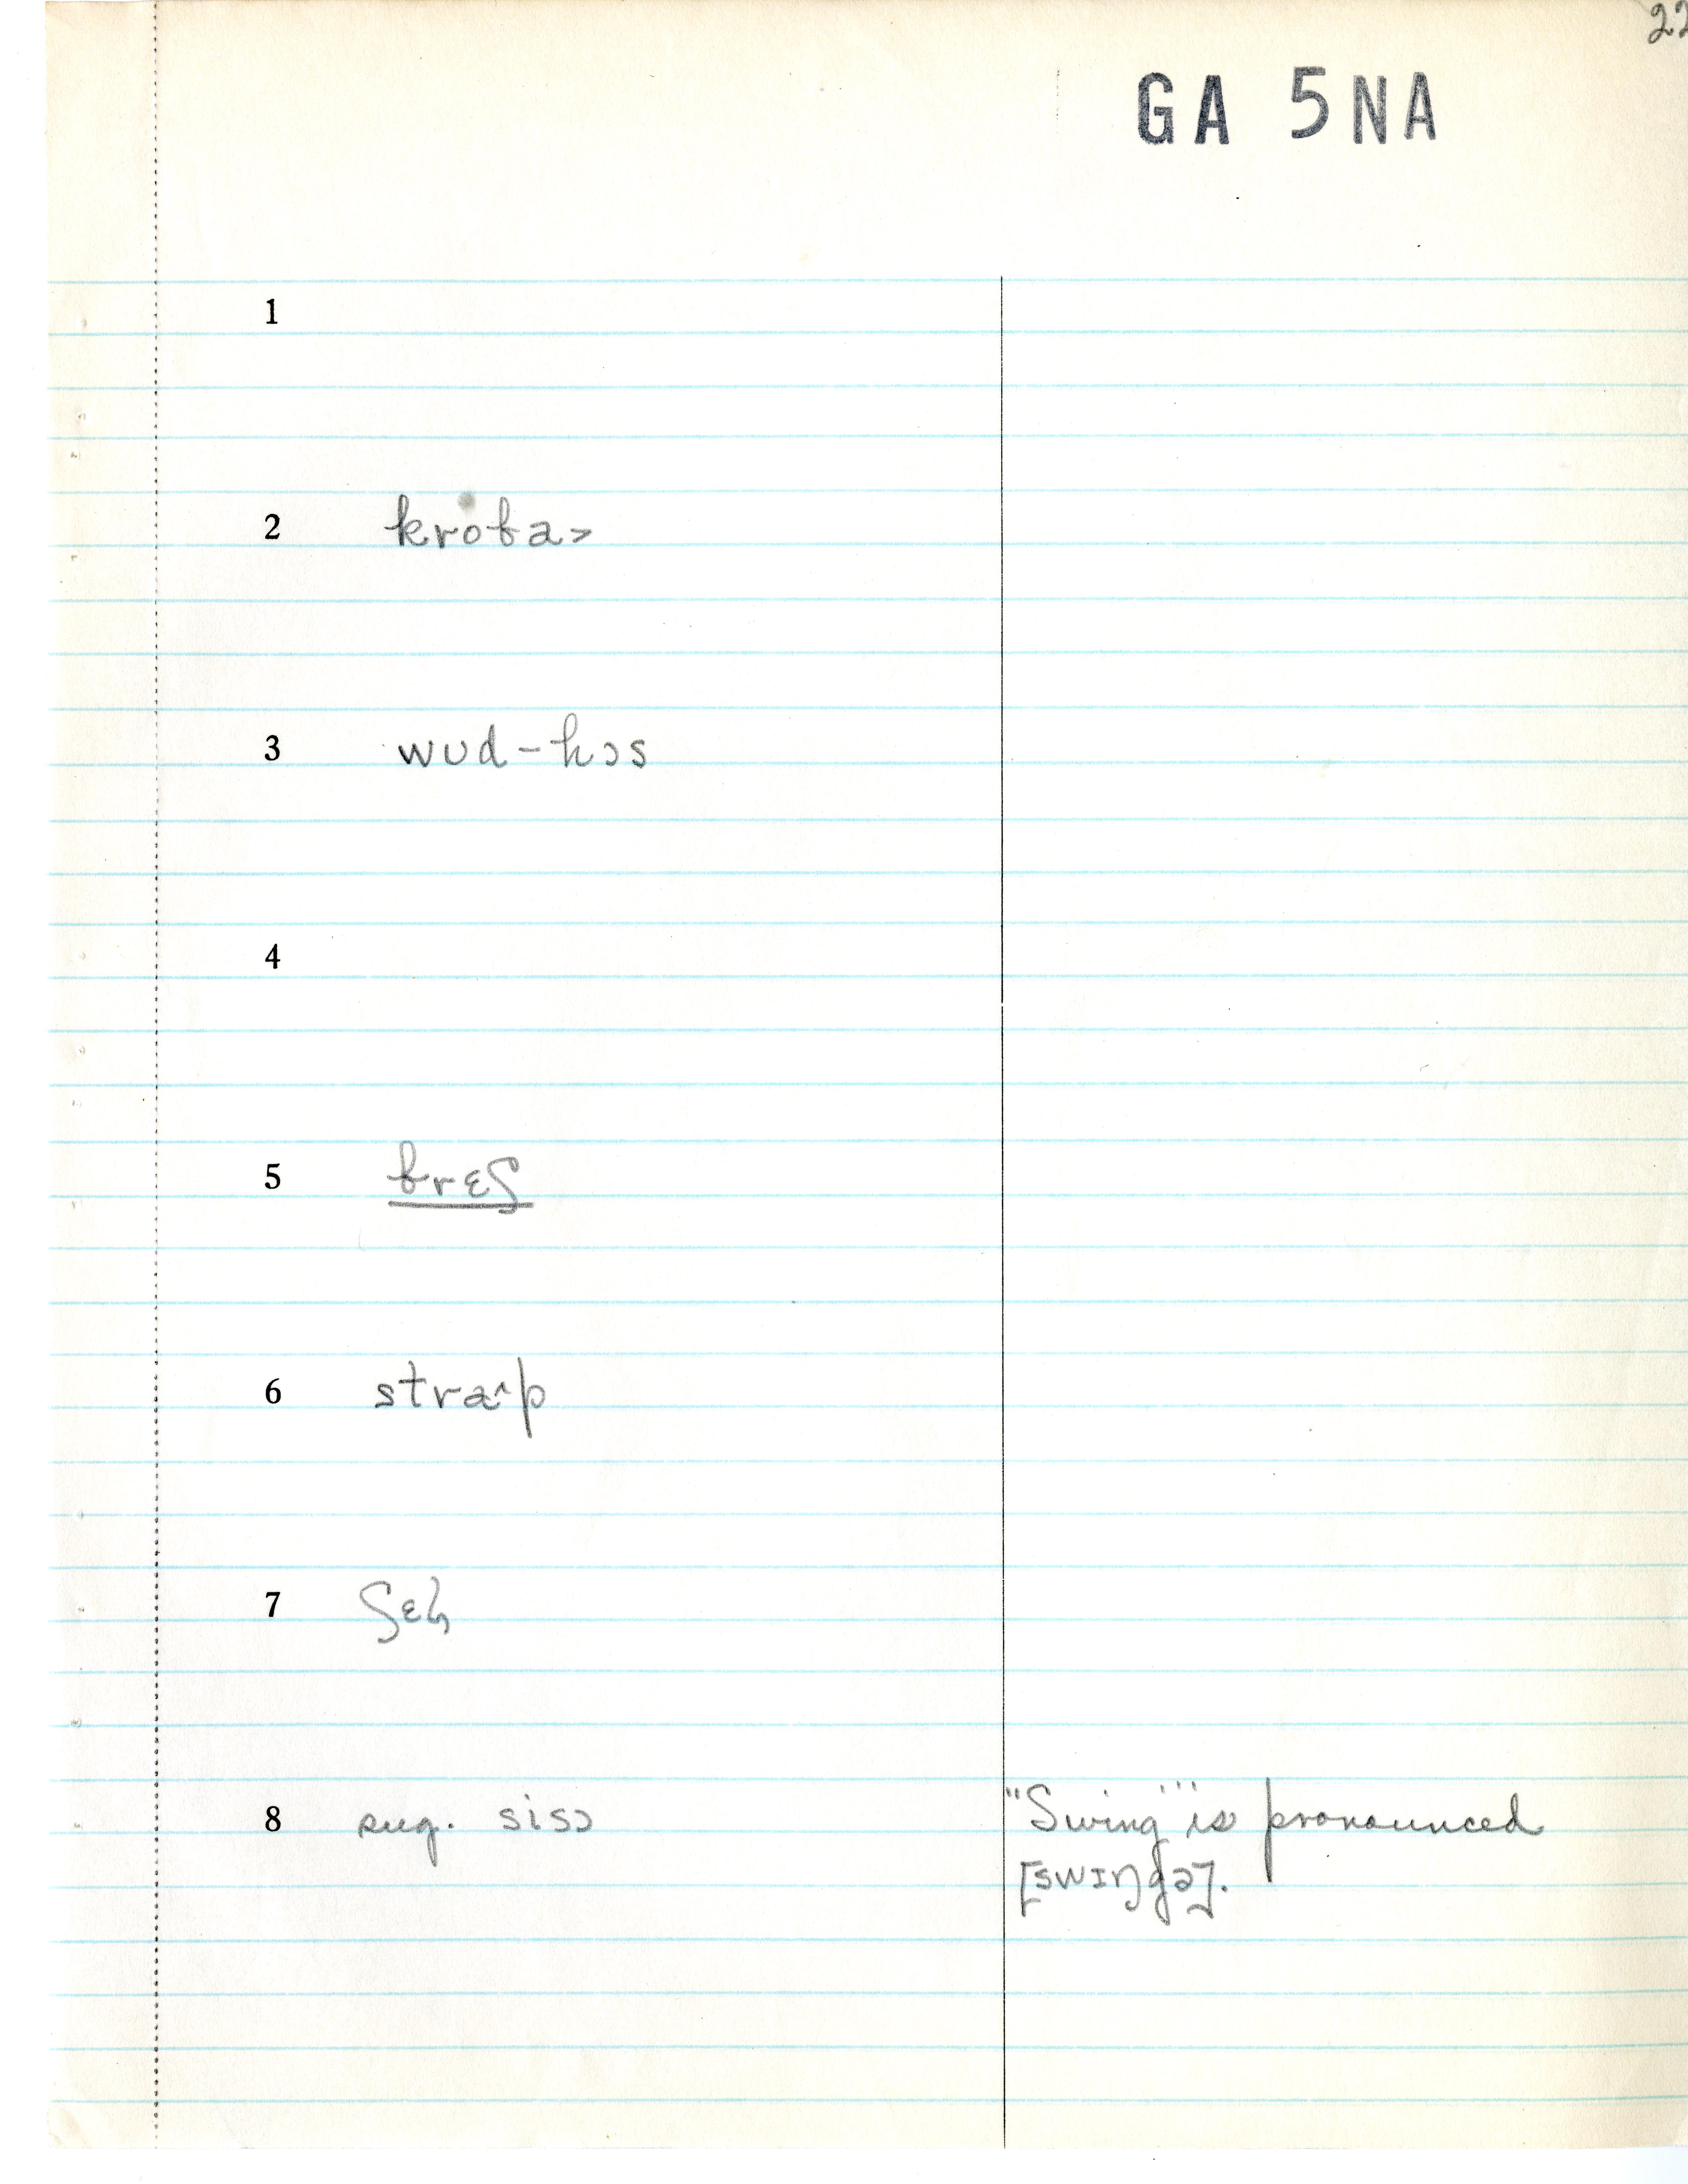 22
GA 5NA
1
2 krobaː>
3 wʊd-hɔs
4
5 brɛʃ
6 stra^p
7 ʃɛl
8 sug. sisɔ
"Swing" is pronounced
[swɪŋgə].